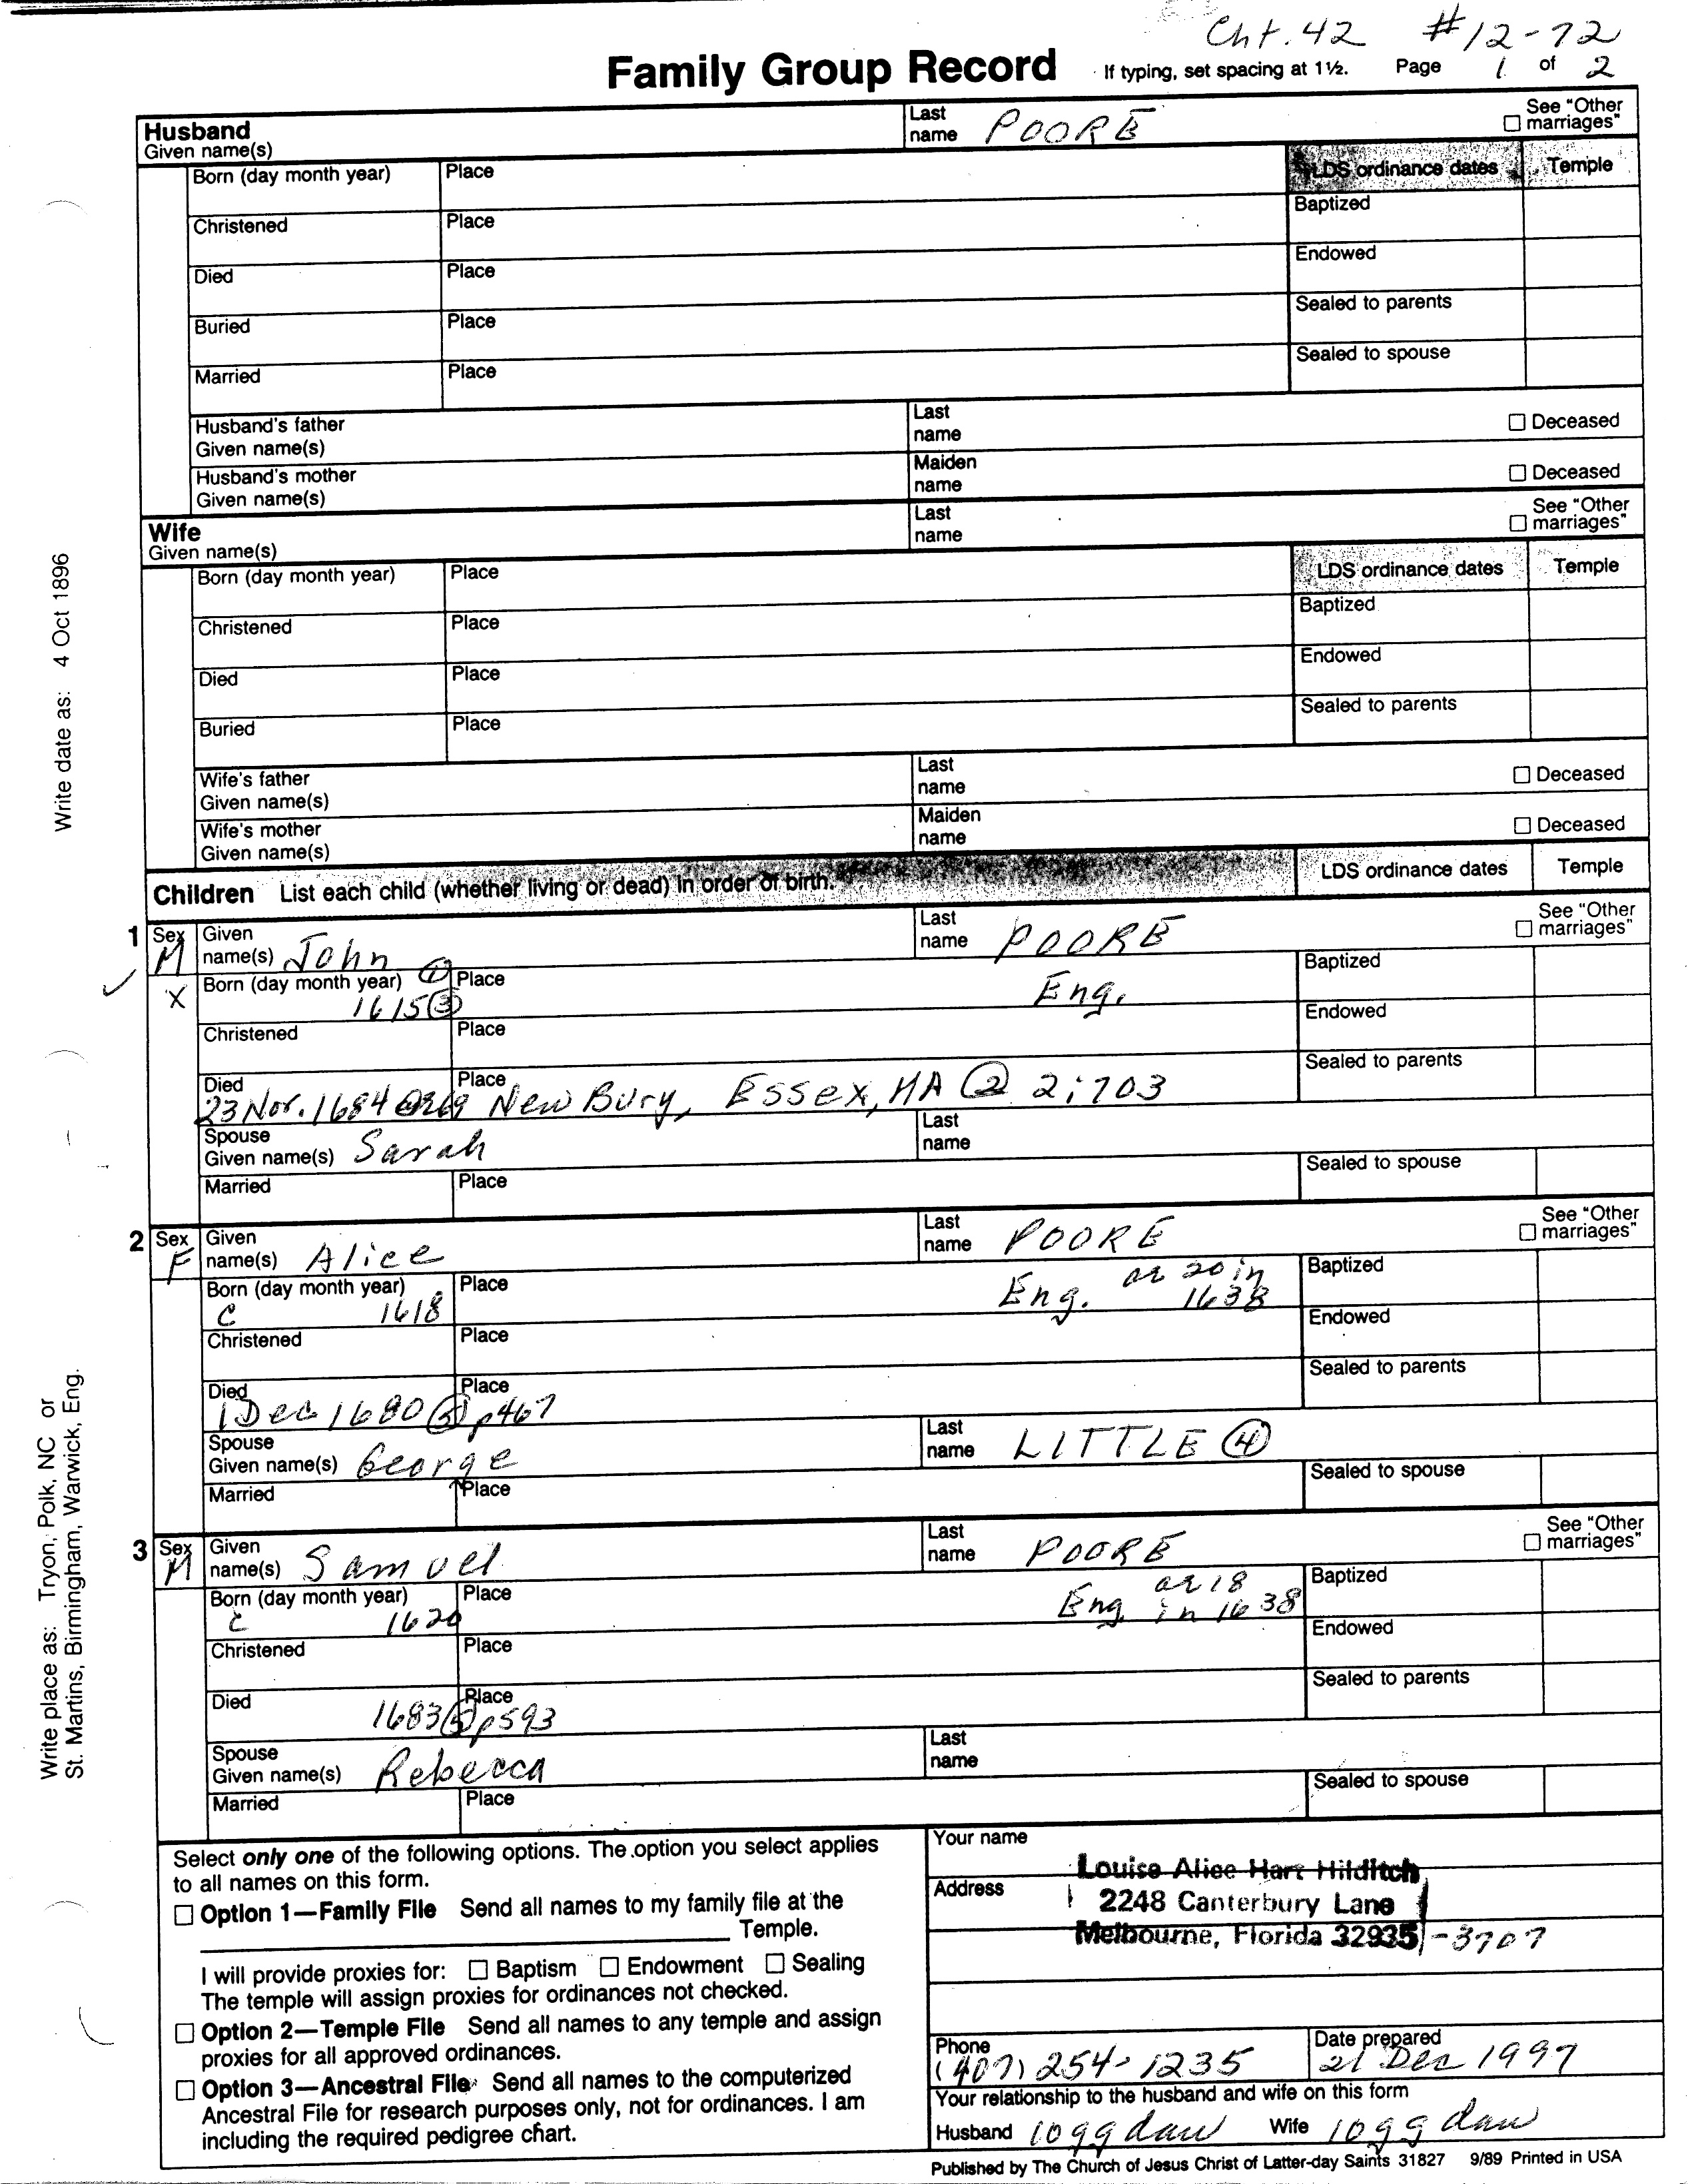 Cht. 42 #12-72
Family Group Record If typing, set spacing at 1½. Page 1 of 2
Husband Given name(s) Last name POORE ☐ See "Other marriages"
Born (day month year) Place LDS ordinance dates Temple
Christened Place Baptized
Died Place Endowed
Buried Place Sealed to parents
Married Place Sealed to spouse
Husband's father Given name(s) Last name ☐ Deceased
Husband's mother Given name(s) Maiden name ☐ Deceased
Wife Given name(s) Last name ☐ See "Other marriages"
Born (day month year) Place LDS ordinance dates Temple
Christened Place Baptized
Died Place Endowed
Buried Place Sealed to parents
Wife's father Given name(s) Last name ☐ Deceased
Wife's mother Given name(s) Maiden name ☐ Deceased
Children List each child (whether living or dead) in order of birth. LDS ordinance dates Temple
1 Sex M Given name(s) John ① Last name POORE ☐ See "Other marriages"
X Born (day month year) 1615 ③ Place Eng. Baptized
Christened Place Endowed
Died 23 Nov. 1684 Place NewBury, Essex, MA ② 2:703 Sealed to parents
Spouse Given name(s) Sarah Last name
Married Place Sealed to spouse
2 Sex F Given name(s) Alice Last name POORE ☐ See "Other marriages"
Born (day month year) C 1618 Place Eng. ae 20 in 1638 Baptized
Christened Place Endowed
Died 1 Dec 1680 ⑤ p467 Place Sealed to parents
Spouse Given name(s) George Last name LITTLE ④
Married Place Sealed to spouse
3 Sex M Given name(s) Samuel Last name POORE ☐ See "Other marriages"
Born (day month year) C 1620 Place Eng ae 18 in 1638 Baptized
Christened Place Endowed
Died 1683 ⑤ p593 Place Sealed to parents
Spouse Given name(s) Rebecca Last name
Married Place Sealed to spouse
Select only one of the following options. The option you select applies
to all names on this form.
☐ Option 1—Family File Send all names to my family file at the
Temple.
I will provide proxies for: ☐ Baptism ☐ Endowment ☐ Sealing
The temple will assign proxies for ordinances not checked.
☐ Option 2—Temple File Send all names to any temple and assign
proxies for all approved ordinances.
☐ Option 3—Ancestral File Send all names to the computerized
Ancestral File for research purposes only, not for ordinances. I am
including the required pedigree chart.
Your name Louise Alice Hart Hilditch
Address 2248 Canterbury Lane
Melbourne, Florida 32935-3707
Phone (407) 254-1235 Date prepared 21 Dec 1997
Your relationship to the husband and wife on this form
Husband 10 gg dau Wife 10 gg dau
Published by The Church of Jesus Christ of Latter-day Saints 31827 9/89 Printed in USA
Write date as: 4 Oct 1896
Write place as: Tryon, Polk, NC or
St. Martins, Birmingham, Warwick, Eng.